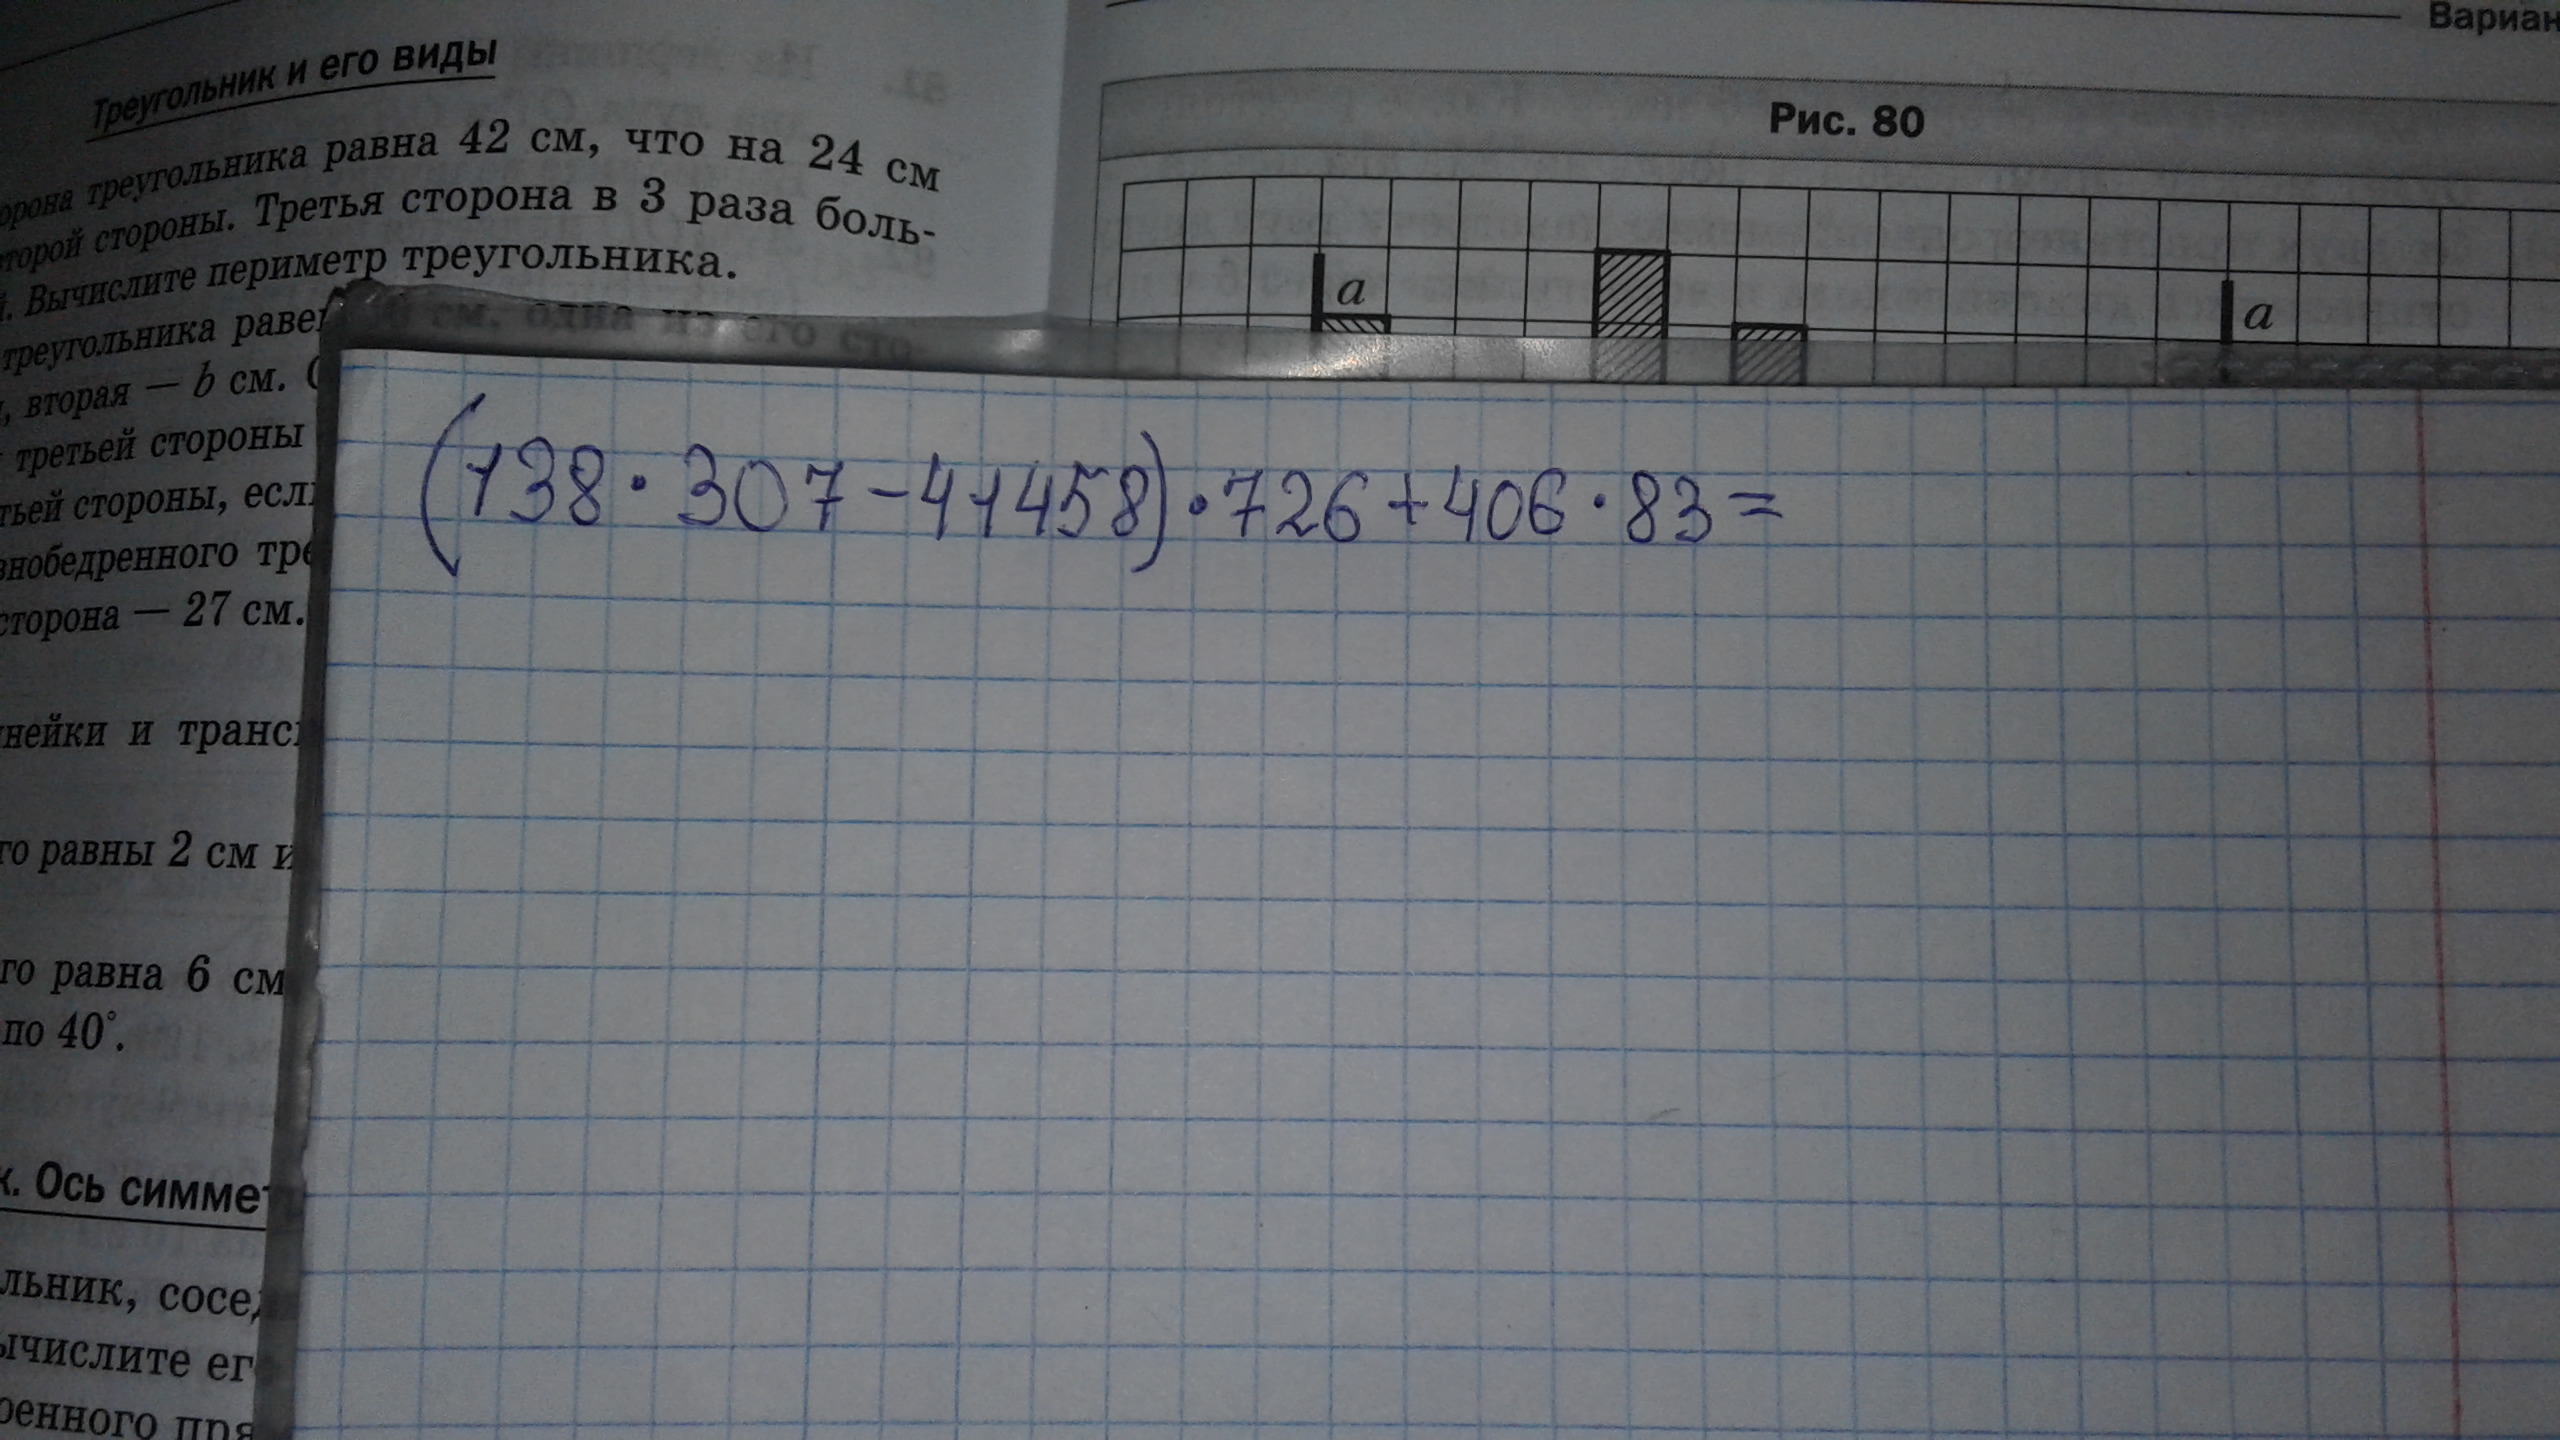 Треугольник и его виды
орона треугольника равна 42 см, что на 24 см
торой стороны. Третья сторона в 3 раза боль-
й. Вычислите периметр треугольника.
треугольника равен см, одна из его сто-
, вторая — b см. С
третьей стороны
тьей стороны, если
внобедренного тре
сторона — 27 см.
нейки и трансп
го равны 2 см и
го равна 6 см
по 40°.
к. Ось симмет
льник, сосед
ычислите его
ренного пря
Вариан
Рис. 80
a
a
(138·307-41458)·726+406·83=